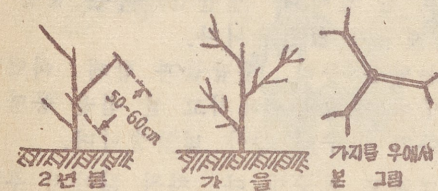 50~60cm
2년봄
가을
가지를 우에서
본 그림